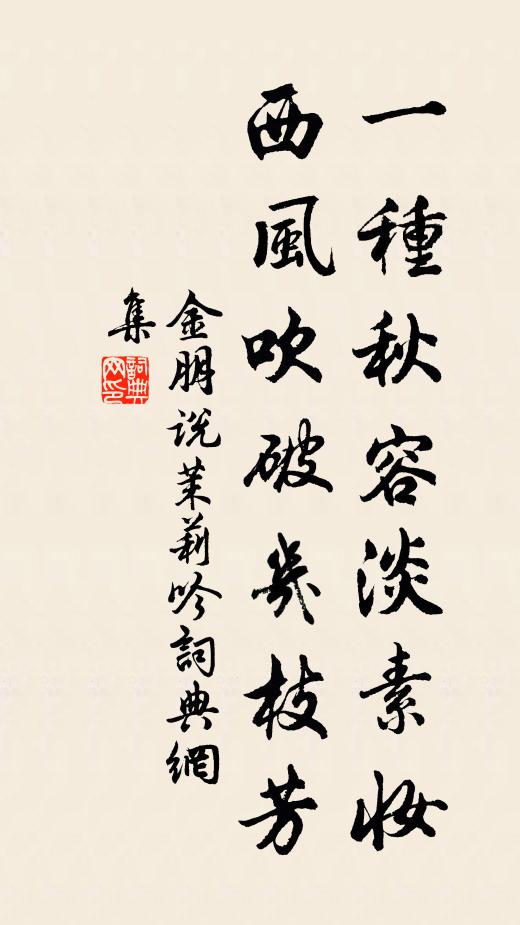 一種秋容淡素妝
西風吹破幾枝芳
金朋説茉莉吟詞典網
集
詞典
网印